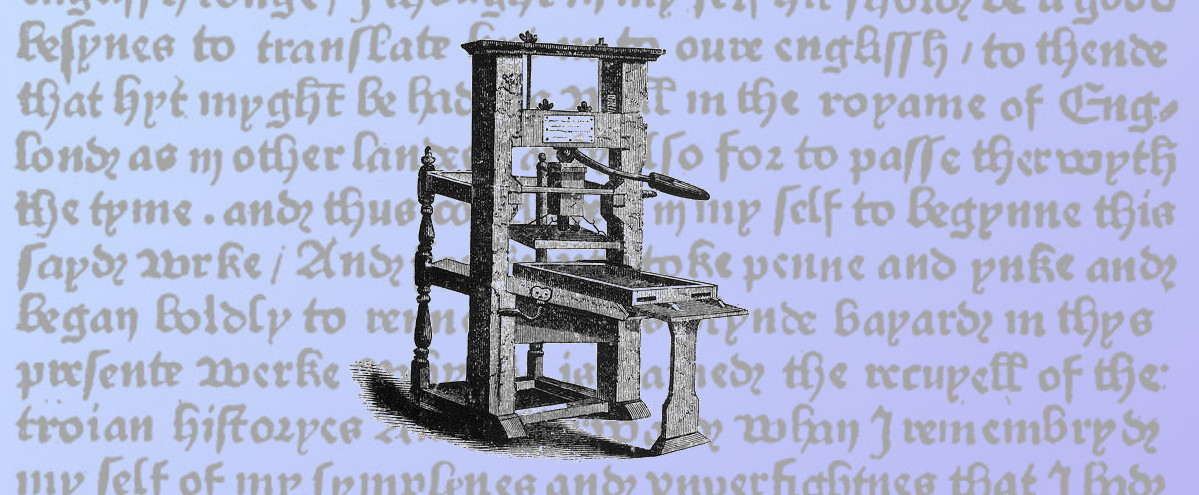 engliſſh tonge / I thought in my ſelf hit ſhold be a good
beſynes to tranſlate in to oure engliſſh / to thende
that hyt myght be had in the royame of Eng⸗
lond as in other alſo for to paſſe therwyth
the tyme . and thus in my ſelf to begynne this
ſayd werke / And toke penne and ynke and
began boldly to renne bayard in thys
preſente werke is named the recuyell of the
troian hiſtoryes whan I remembryd
my ſelf of my ſymplenes and vnperfightnes that I had